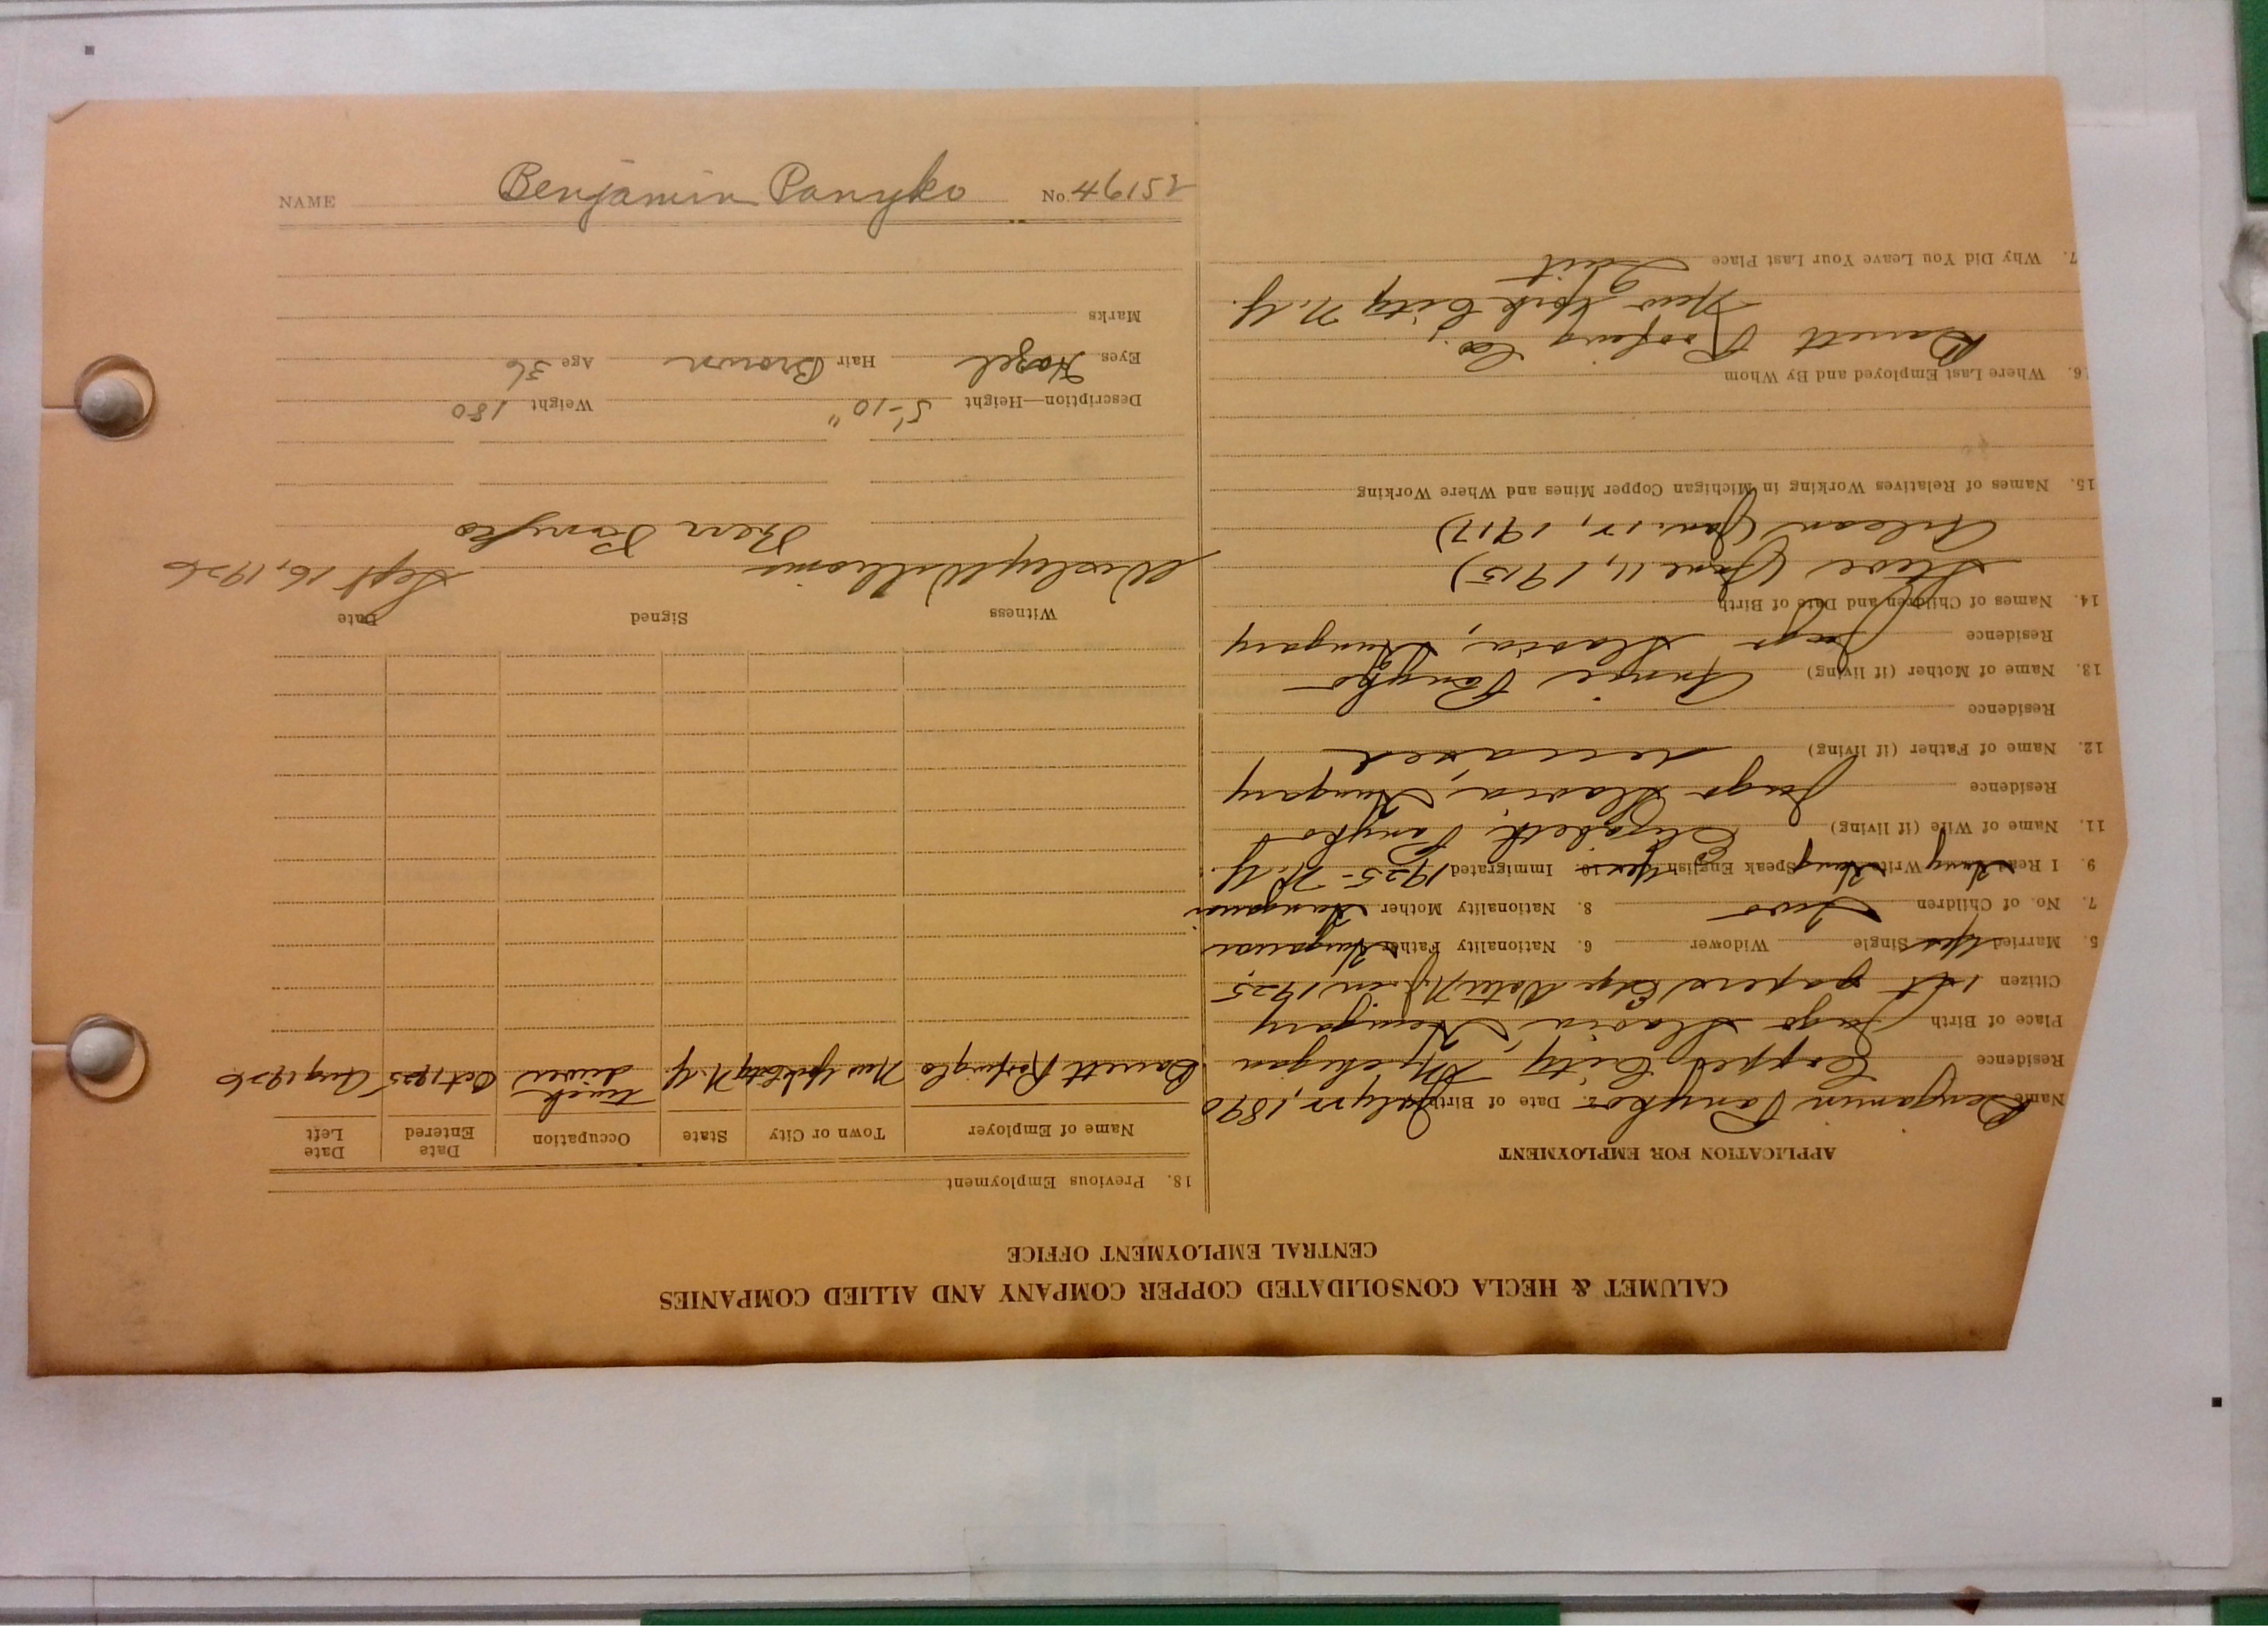 NAME Benjamin Panyko No. 46152
CALUMET & HECLA CONSOLIDATED COPPER COMPANY AND ALLIED COMPANIES
CENTRAL EMPLOYMENT OFFICE
APPLICATION FOR EMPLOYMENT
Name Benjamin Panyko 2. Date of Birth July 1890
Residence Copper City, Michigan
Place of Birth Jugo Slavia, Hungary
Citizen 1st papers N.J. in 1925
5. Married Yes Single Widower 6. Nationality Father Hungarian
7. No. of Children Two 8. Nationality Mother Hungarian
9. I Read Hung Write Hung Speak English Yes 10. Immigrated 1925 - N.Y.
11. Name of Wife (if living) Elizabeth Panyko
Residence Jugo Slavia, Hungary
12. Name of Father (if living) deceased
Residence
13. Name of Mother (if living) Annie Panyko
Residence Jugo Slavia, Hungary
14. Names of Children and Date of Birth
Steve (June 11, 1915)
(Jan. 1917)
15. Names of Relatives Working in Michigan Copper Mines and Where Working
6. Where Last Employed and By Whom
Barrett Roofing Co.,
New York City N.Y.
7. Why Did You Leave Your Last Place Quit
18. Previous Employment
Name of Employer Town or City State Occupation Date Entered Date Left
Barrett Roofing Co New York City N.Y. truck driver Oct 1925 Aug 1926
Witness Signed Date
Wesley Williams Ben Panyko Sept 16, 1926
Description—Height 5'-10" Weight 180
Eyes Hazel Hair Brown Age 36
Marks